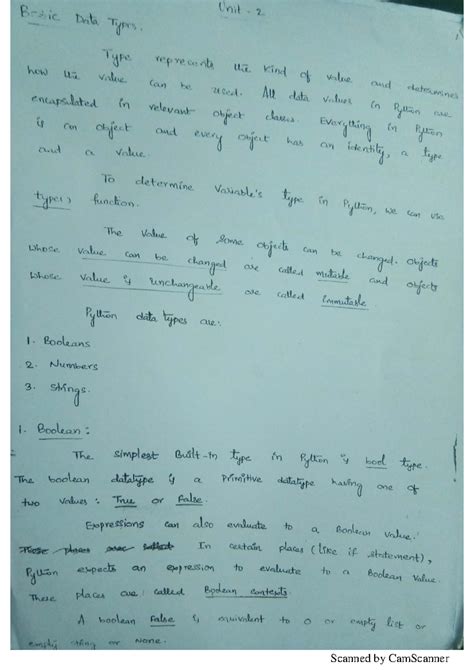 Unit - 2
Basic Data Types.
Type represents the kind of value and determines
how the value can be used. All data values in Python are
encapsulated in relevant object classes. Everything in Python
is an object and every object has an identity, a type
and a value.
To determine variable's type in Python, we can use
type() function.
The value of some objects can be changed. Objects
whose value can be changed are called mutable and objects
whose value is unchangeable are called immutable
Python data types are:
1. Booleans
2. Numbers
3. Strings.
1. Boolean :
The simplest Built-In type in Python is bool type.
The boolean datatype is a Primitive datatype having one of
two values : True or False.
Expressions can also evaluate to a Boolean value.
These places are called In certain places (like if statement),
Python expects an expression to evaluate to a Boolean Value.
These places are called Boolean contexts.
A boolean False is equivalent to 0 or empty list or
empty string or None.
Scanned by CamScanner